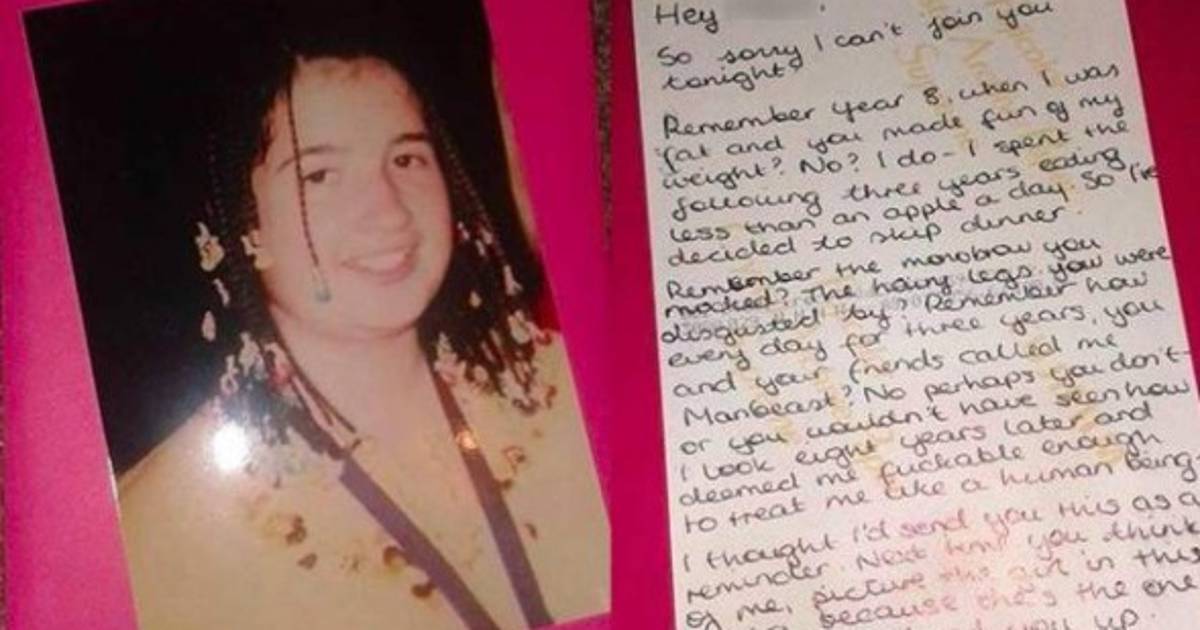 Hey
So sorry I can't join you
tonight.
Remember year 8, when I was
fat and you made fun of my
weight? No? I do - I spent the
following three years eating
less than an apple a day. So I've
decided to skip dinner.
Remember the monobrow you
mocked? The hairy legs you were
disgusted by? Remember how
every day for three years, you
and your friends called me
Manbeast? No perhaps you don't-
or you wouldn't have seen how
I look eight years later and
deemed me fuckable enough
to treat me like a human being.
I thought I'd send you this as a
reminder. Next time you think
of me, picture the girl in this
because she's the one
you up.